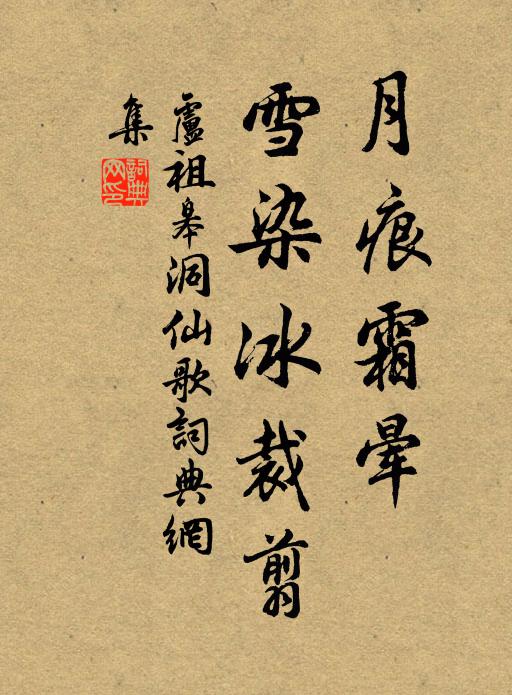 月痕霜暈
雪染冰裁剪
盧祖皋洞仙歌詞典網
集
詞典
网印